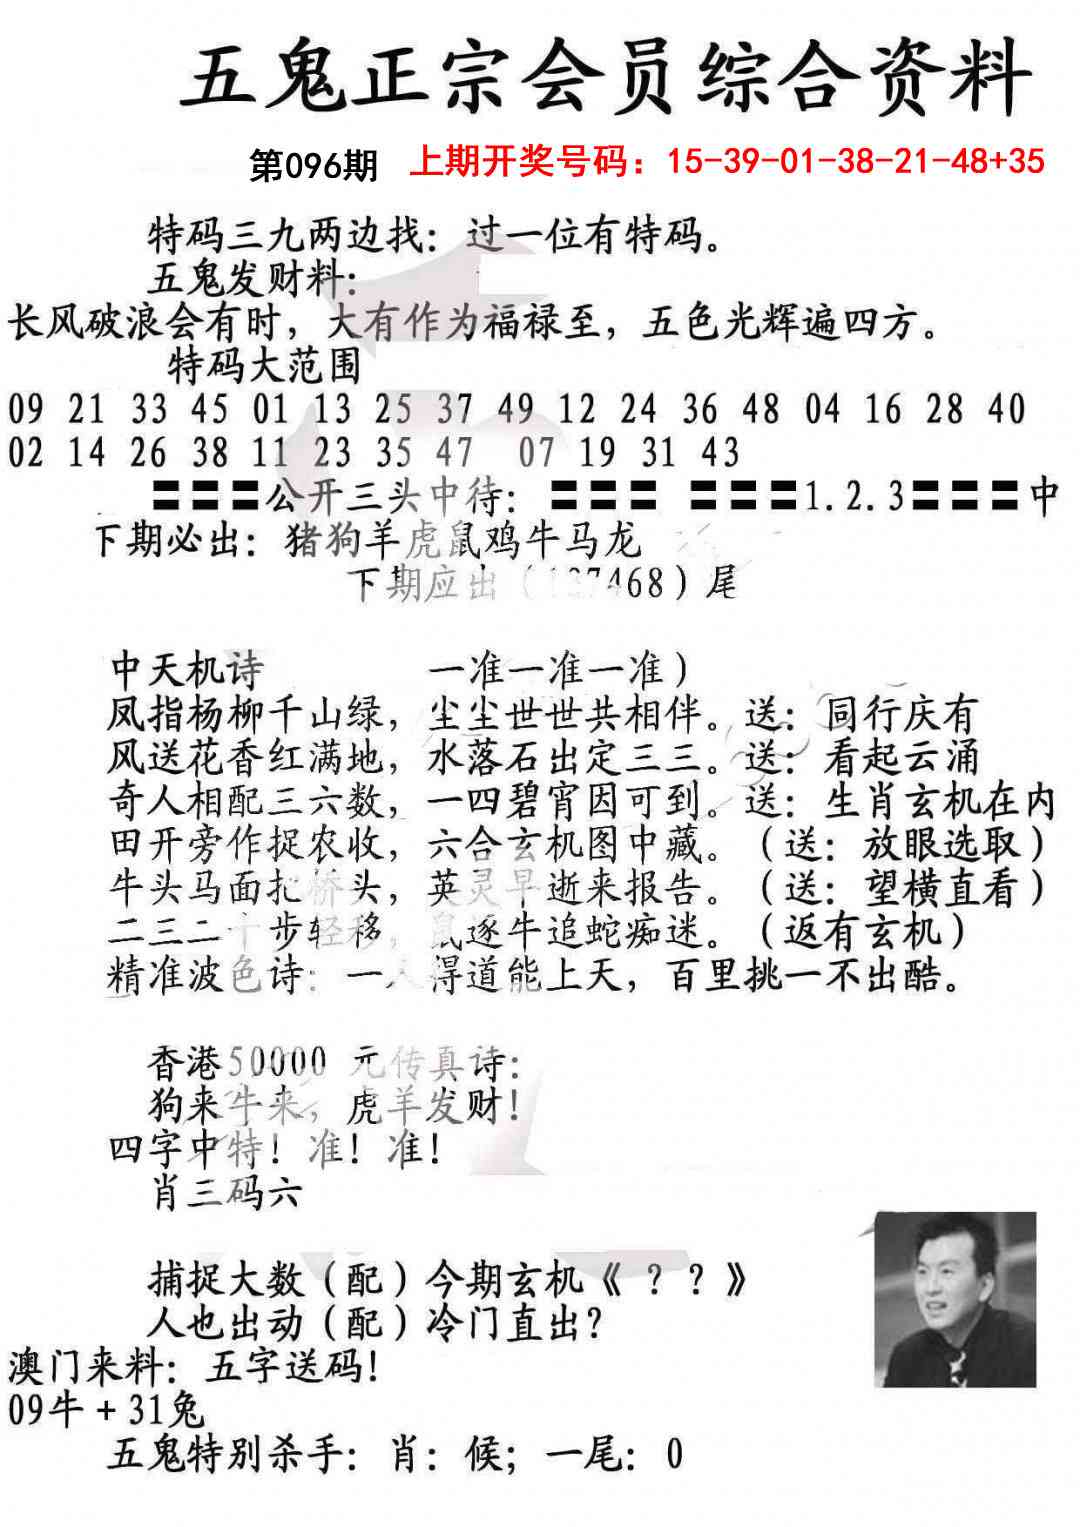 五鬼正宗会员综合资料
第096期 上期开奖号码：15-39-01-38-21-48+35
特码三九两边找：过一位有特码。
五鬼发财料：
长风破浪会有时，大有作为福禄至，五色光辉遍四方。
特码大范围
09 21 33 45 01 13 25 37 49 12 24 36 48 04 16 28 40
02 14 26 38 11 23 35 47 07 19 31 43
〓〓〓公开三头中待：〓〓〓 〓〓〓1.2.3〓〓〓中
下期必出：猪狗羊虎鼠鸡牛马龙
下期应出（127468）尾
中天机诗 一准一准一准）
凤指杨柳千山绿，尘尘世世共相伴。送：同行庆有
风送花香红满地，水落石出定三三。送：看起云涌
奇人相配三六数，一四碧宵因可到。送：生肖玄机在内
田开旁作捉农收，六合玄机图中藏。（送：放眼选取）
牛头马面把桥头，英灵早逝来报告。（送：望横直看）
二三二十步轻移，鼠逐牛追蛇痴迷。（返有玄机）
精准波色诗：一人得道能上天，百里挑一不出酷。
香港50000 元传真诗：
狗来牛来，虎羊发财！
四字中特！准！准！
肖三码六
捕捉大数（配）今期玄机《？？》
人也出动（配）冷门直出？
澳门来料：五字送码！
09牛＋31兔
五鬼特别杀手：肖：候；一尾：0